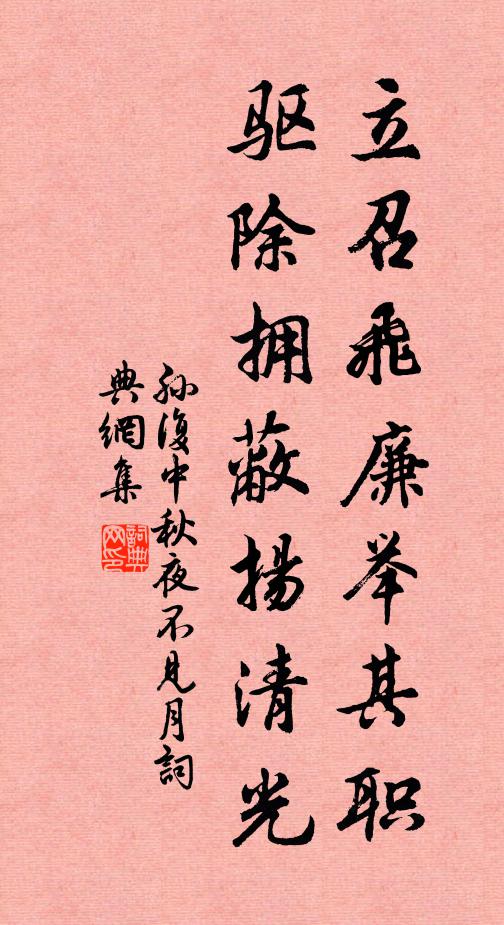 立召飛廉举其职
驱除拥蔽揚清光
孙復中秋夜不見月詞
典網集
詞典
网印